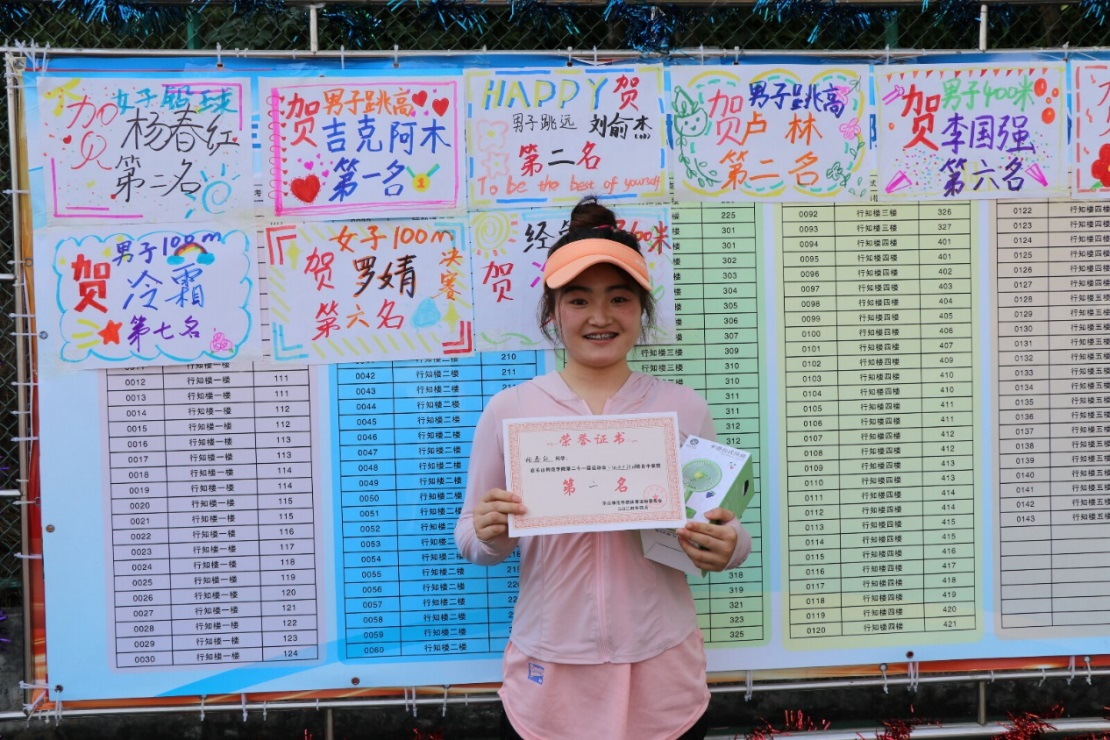 贺
女子铅球
杨春红
第二名
贺
男子跳高
吉克阿木
第一名
1
HAPPY 贺
男子跳远 刘俞杰
第二名
To be the best of yourself
贺
男子跳高
卢林
第二名
贺
男子400米
李国强
第六名
贺
男子100m
冷霜
第七名
贺
女子100m
决赛
罗婧
第六名
贺
米
荣誉证书
同学:
第二名
二〇二四年四月
0012 行知楼一楼 111
0013 行知楼一楼 111
0014 行知楼一楼 112
0015 行知楼一楼 112
0016 行知楼一楼 113
0017 行知楼一楼 113
0018 行知楼一楼 114
0019 行知楼一楼 114
0020 行知楼一楼 115
0021 行知楼一楼 116
0022 行知楼一楼 116
0023 行知楼一楼 117
0024 行知楼一楼 118
0025 行知楼一楼 119
0026 行知楼一楼 120
0027 行知楼一楼 121
0028 行知楼一楼 122
0029 行知楼一楼 123
0030 行知楼一楼 124
210
0042 行知楼二楼 211
0043 行知楼二楼
0044 行知楼二楼
0045 行知楼二楼
0046 行知楼二楼
0047 行知楼二楼
0048 行知楼二楼
0049 行知楼二楼
0050 行知楼二楼
0051 行知楼二楼
0052 行知楼二楼
0053 行知楼二楼
0054 行知楼二楼
0055 行知楼二楼
0056 行知楼二楼
0057 行知楼二楼
0058 行知楼二楼
0059 行知楼二楼
0060 行知楼二楼
225
301
301
302
303
304
305
306
307
行知楼三楼 309
行知楼三楼 310
310
311
311
312
312
318
319
321
323
325
0092 行知楼三楼 326
0093 行知楼三楼 327
0094 行知楼四楼 401
0095 行知楼四楼 401
0096 行知楼四楼 402
0097 行知楼四楼 403
0098 行知楼四楼 404
0099 行知楼四楼 405
0100 行知楼四楼 406
0101 行知楼四楼 407
0102 行知楼四楼 409
0103 行知楼四楼 410
0104 行知楼四楼 410
0105 行知楼四楼 411
0106 行知楼四楼 411
0107 行知楼四楼 412
0108 行知楼四楼 412
0109 行知楼四楼 413
0110 行知楼四楼 413
0111 行知楼四楼 414
0112 行知楼四楼 414
0113 行知楼四楼 415
0114 行知楼四楼 415
0115 行知楼四楼 416
0116 行知楼四楼 417
0117 行知楼四楼 418
0118 行知楼四楼 419
0119 行知楼四楼 420
0120 行知楼四楼 421
0122 行知楼四楼
0123 行知楼四楼
0124 行知楼四楼
0125 行知楼四楼
0126 行知楼四楼
0127 行知楼
0128 行知楼五楼
0129 行知楼五楼
0130 行知楼五楼
0131 行知楼五楼
0132 行知楼五楼
0133 行知楼五楼
0134 行知楼五楼
0135 行知楼五楼
0136 行知楼五楼
0137 行知楼五楼
0138 行知楼五楼
0139 行知楼五楼
0140 行知楼五楼
0141 行知楼五楼
0142 行知楼五楼
0143 行知楼五楼